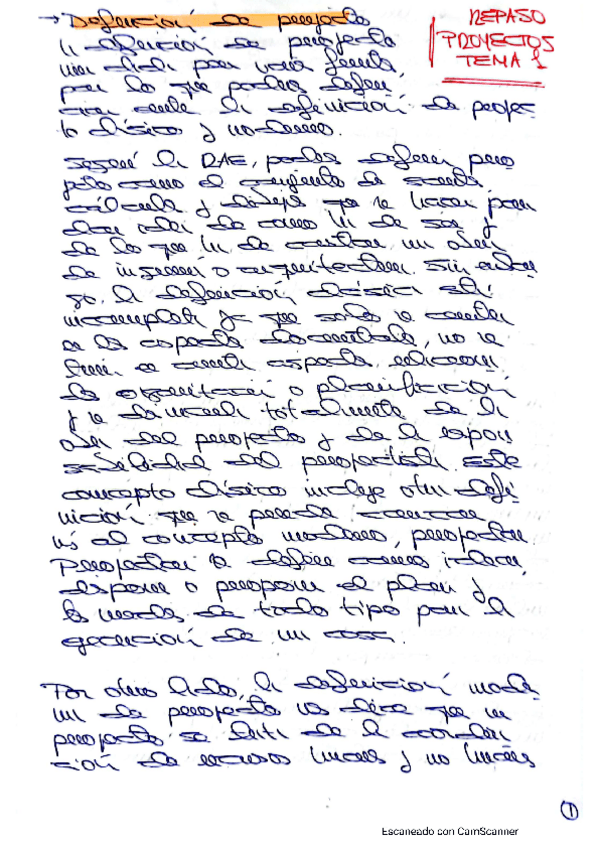 → Definición de proyecto
REPASO
PROYECTOS
TEMA 1
la definición de proyecto
por lo que podemos defin
la definición de proyec
to clásico y moderno.
Según la RAE, podemos definir pro
yecto como el conjunto de
cálculos y dibujos que se hacen para
dar idea de como ha de ser y
de lo que ha de costar un obra
de ingeniería o arquitectura. Sin embar
go, la definición clásica está
incompleta ya que solo se
en los aspectos documentales, no se
en cuenta aspectos
de organización o planificación
y se totalmente de la
obra del proyecto y de la respon
sabilidad del proyectista. Este
concepto clásico incluye otra defi
nición que se puede
más al concepto moderno, proyectar.
Proyectar se define como idear,
disponer o proponer el plan y
los modos de todo tipo para la
ejecución de un cosa.
Por otro lado, la definición moder
na de proyecto nos dice que un
proyecto se trata de la coordina
ción de recursos humanos y no humanos
1
Escaneado con CamScanner